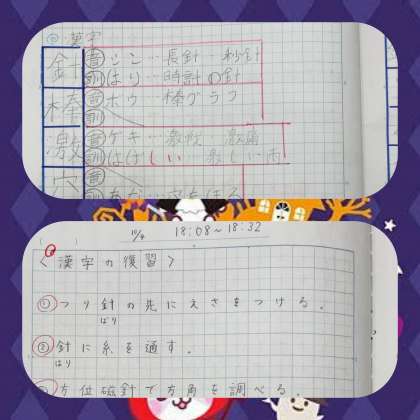 ◎漢字
針 音 シン…長針…秒針
訓 はり…時計の針
棒 音 ボウ…棒グラフ
訓
激 音 ゲキ…
訓 はげしい…激しい雨
穴 音
訓 あな…
10/4 18:08～18:32
<漢字の復習>
① つり針の先にえさをつける。
ばり
② 針に糸を通す。
はり
③ 方位磁針で方角を調べる。